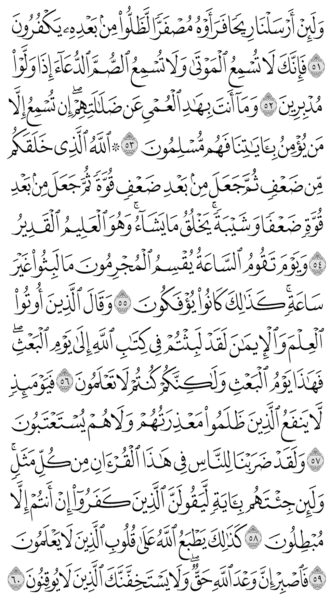 وَلَئِنْ أَرْسَلْنَا رِيحًا فَرَأَوْهُ مُصْفَرًّا لَّظَلُّوا۟ مِنۢ بَعْدِهِۦ يَكْفُرُونَ
٥١ فَإِنَّكَ لَا تُسْمِعُ ٱلْمَوْتَىٰ وَلَا تُسْمِعُ ٱلصُّمَّ ٱلدُّعَآءَ إِذَا وَلَّوْا۟
مُدْبِرِينَ ٥٢ وَمَآ أَنتَ بِهَٰدِ ٱلْعُمْىِ عَن ضَلَٰلَتِهِمْ ۖ إِن تُسْمِعُ إِلَّا
مَن يُؤْمِنُ بِـَٔايَٰتِنَا فَهُم مُّسْلِمُونَ ٥٣ ۞ ٱللَّهُ ٱلَّذِى خَلَقَكُم
مِّن ضَعْفٍ ثُمَّ جَعَلَ مِنۢ بَعْدِ ضَعْفٍ قُوَّةً ثُمَّ جَعَلَ مِنۢ بَعْدِ
قُوَّةٍ ضَعْفًا وَشَيْبَةً ۚ يَخْلُقُ مَا يَشَآءُ ۖ وَهُوَ ٱلْعَلِيمُ ٱلْقَدِيرُ
٥٤ وَيَوْمَ تَقُومُ ٱلسَّاعَةُ يُقْسِمُ ٱلْمُجْرِمُونَ مَا لَبِثُوا۟ غَيْرَ
سَاعَةٍ ۚ كَذَٰلِكَ كَانُوا۟ يُؤْفَكُونَ ٥٥ وَقَالَ ٱلَّذِينَ أُوتُوا۟
ٱلْعِلْمَ وَٱلْإِيمَٰنَ لَقَدْ لَبِثْتُمْ فِى كِتَٰبِ ٱللَّهِ إِلَىٰ يَوْمِ ٱلْبَعْثِ ۖ
فَهَٰذَا يَوْمُ ٱلْبَعْثِ وَلَٰكِنَّكُمْ كُنتُمْ لَا تَعْلَمُونَ ٥٦ فَيَوْمَئِذٍ
لَّا يَنفَعُ ٱلَّذِينَ ظَلَمُوا۟ مَعْذِرَتُهُمْ وَلَا هُمْ يُسْتَعْتَبُونَ
٥٧ وَلَقَدْ ضَرَبْنَا لِلنَّاسِ فِى هَٰذَا ٱلْقُرْءَانِ مِن كُلِّ مَثَلٍ ۚ
وَلَئِن جِئْتَهُم بِـَٔايَةٍ لَّيَقُولَنَّ ٱلَّذِينَ كَفَرُوٓا۟ إِنْ أَنتُمْ إِلَّا
مُبْطِلُونَ ٥٨ كَذَٰلِكَ يَطْبَعُ ٱللَّهُ عَلَىٰ قُلُوبِ ٱلَّذِينَ لَا يَعْلَمُونَ
٥٩ فَٱصْبِرْ إِنَّ وَعْدَ ٱللَّهِ حَقٌّ ۖ وَلَا يَسْتَخِفَّنَّكَ ٱلَّذِينَ لَا يُوقِنُونَ ٦٠